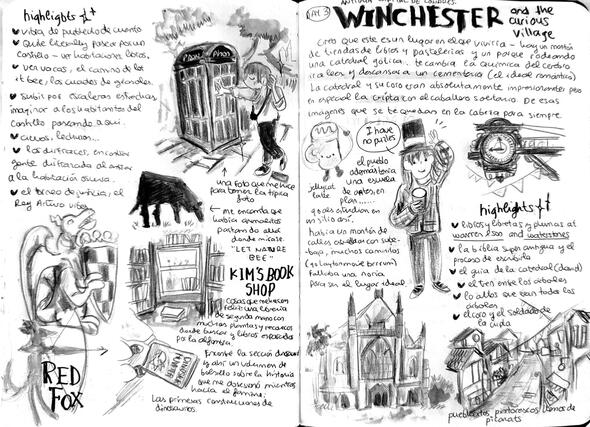 highlights
vibes de pueblecito de cuento
Quite literally pasear por un
castillo - ver habitaciones, libros,
ver vacas, el camino de let
it bee, los cuadros de grandes.
Subir por escaleras estrechas
imaginar a los habitantes del
castillo paseando aquí.
ciervos, lechuzas...
los disfraces, encontrar
gente disfrazada al entrar
a la habitación
el torneo de justicia, el
Rey Arturo vibes
una foto que me hice
para tomar la típica
foto
me encanta que
había animalitos
pastando allá
donde mirase.
"LET NATURE
BEE"
KIM'S BOOK
SHOP
cositas que me hacen
feliz: una librería
de segunda mano con
muchas plantitas y recovecos
donde buscar y libros esparcidos
por la alfombra.
Encontré la sección dinosaur
y así un volumen de
bolsillo sobre la historia
que me obsesionó mientras
hacía el femme.
Las primeras construcciones de
dinosaurios.
DINOSAUR
HUNTERS
RED
FOX
DAY 3
ANTIGUA CAPITAL DE LONDRES.
WINCHESTER
and the
curious
village
Creo que este es un lugar en el que viviría - hay un montón
de tiendas de libros y pastelerías y un parque rodeando
una catedral gótica. te cambia la química del cerebro
ir a leer y descansar a un cementerio (el ideal romántico)
La catedral y su coro eran absolutamente impresionante pero
en especial la cripta con el caballero solitario. De esas
imágenes que se te quedan en la cabeza para siempre.
I have
no puzzles
jellycat
latte
el pueblo
además tenía
una escuela
de artes, en
plan.....
podés estudiar en
un sitio así,
había un montón de
calles con sube-
baja, muchos caminitos
(
faltaba una noria
para ser el lugar ideal.
highlights
libros y libretas y plumas at
warren & son and waterstones
la biblia super antigua y el
proceso de escribirla
el guía de la catedral (david)
el tren entre los árboles
lo altos que eran todos los
árboles
el coro y el soldado de
la cripta
pueblecitos pintorescos llenos de